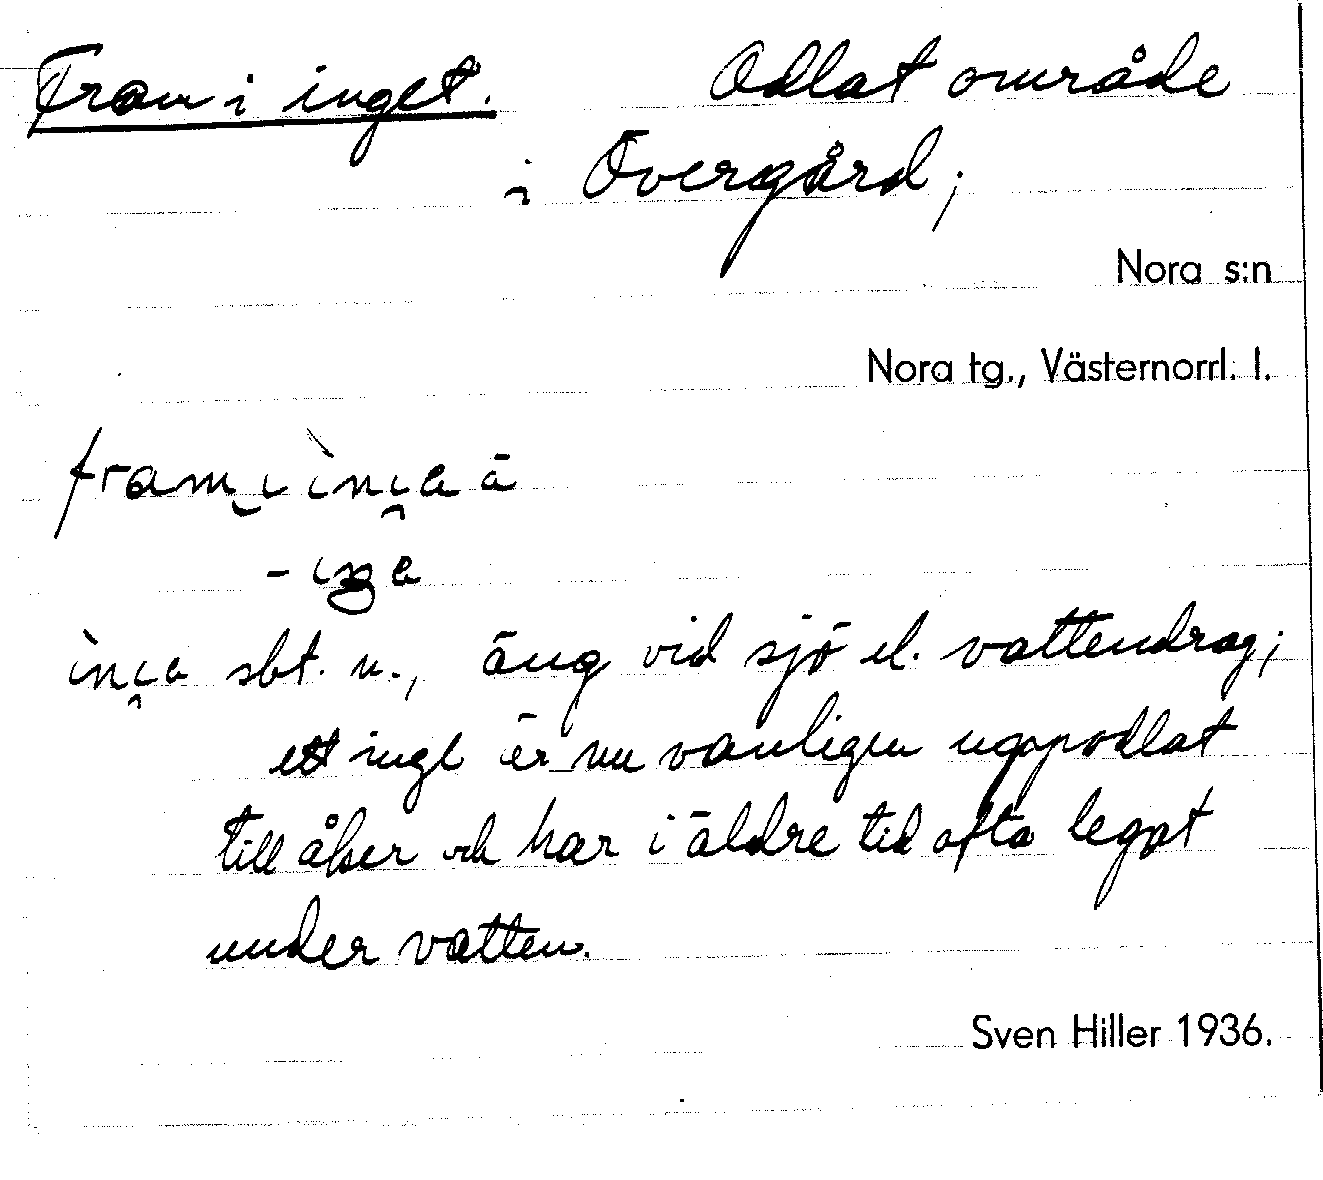 Fram i inget. Odlat område
i Övergård;
Nora s:n
Nora tg., Västernorrl. l.
ett inge är nu vanligen uppodlat
till åker och har i äldre tid ofta legat
under vatten.
sbt. n., äng vid sjö el. vattendrag;
Sven Hiller 1936.